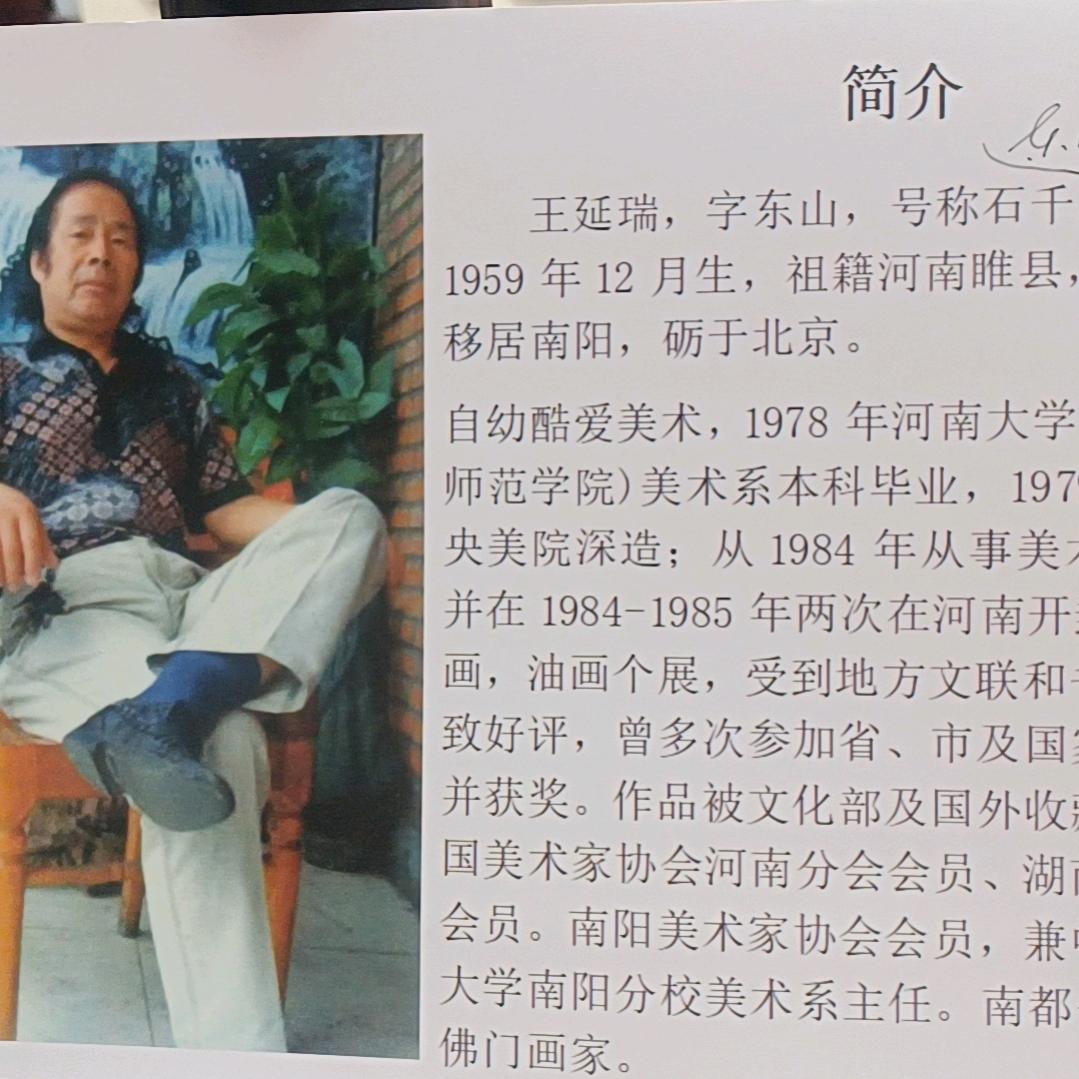 简介
王延瑞，字东山，号称石千
1959 年 12 月生，祖籍河南睢县，
移居南阳，砺于北京。
自幼酷爱美术，1978 年河南大学
师范学院)美术系本科毕业，197
央美院深造；从 1984 年从事美
并在 1984-1985 年两次在河南开
画，油画个展，受到地方文联和
致好评，曾多次参加省、市及国
并获奖。作品被文化部及国外收
国美术家协会河南分会会员、湖
会员。南阳美术家协会会员，兼
大学南阳分校美术系主任。南都
佛门画家。